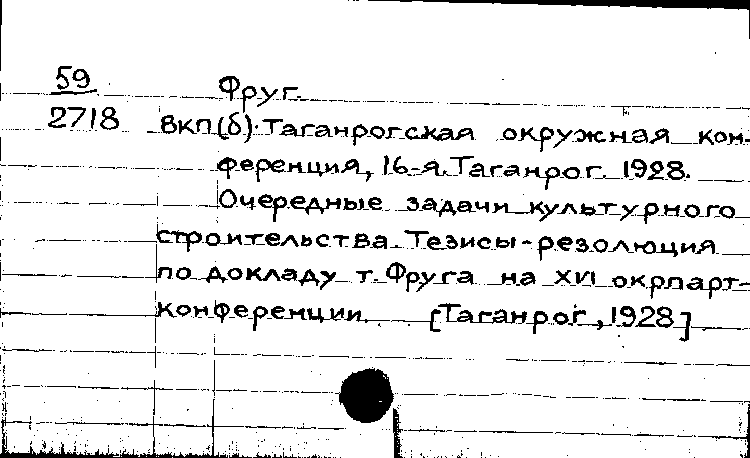 59
Фруг.
2718 ВКП(б). Таганрогская окружная кон-
ференция, 16-я. Таганрог. 1928.
Очередные задачи культурного
строительства. Тезисы-резолюция
по докладу т. Фруга на XVI окрпарт-
конференции. [Таганрог, 1928]